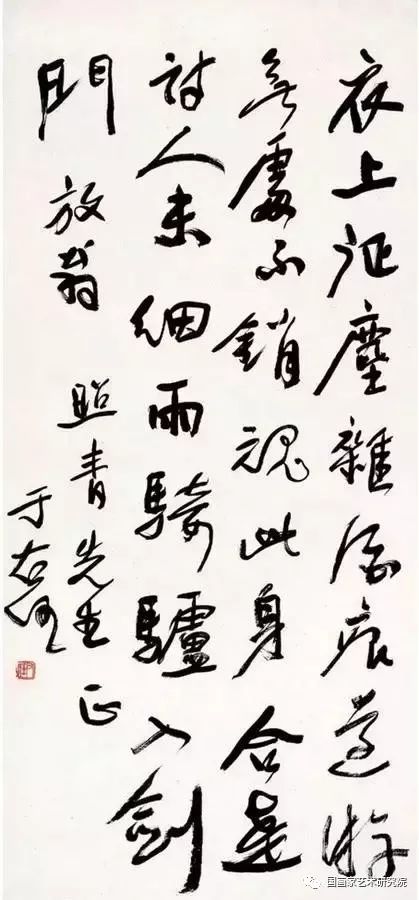 衣上征塵雜酒痕遠游
無處不銷魂此身合是
詩人未細雨騎驢入劍
門 放翁
照青先生正
于右任
国画家艺术研究院